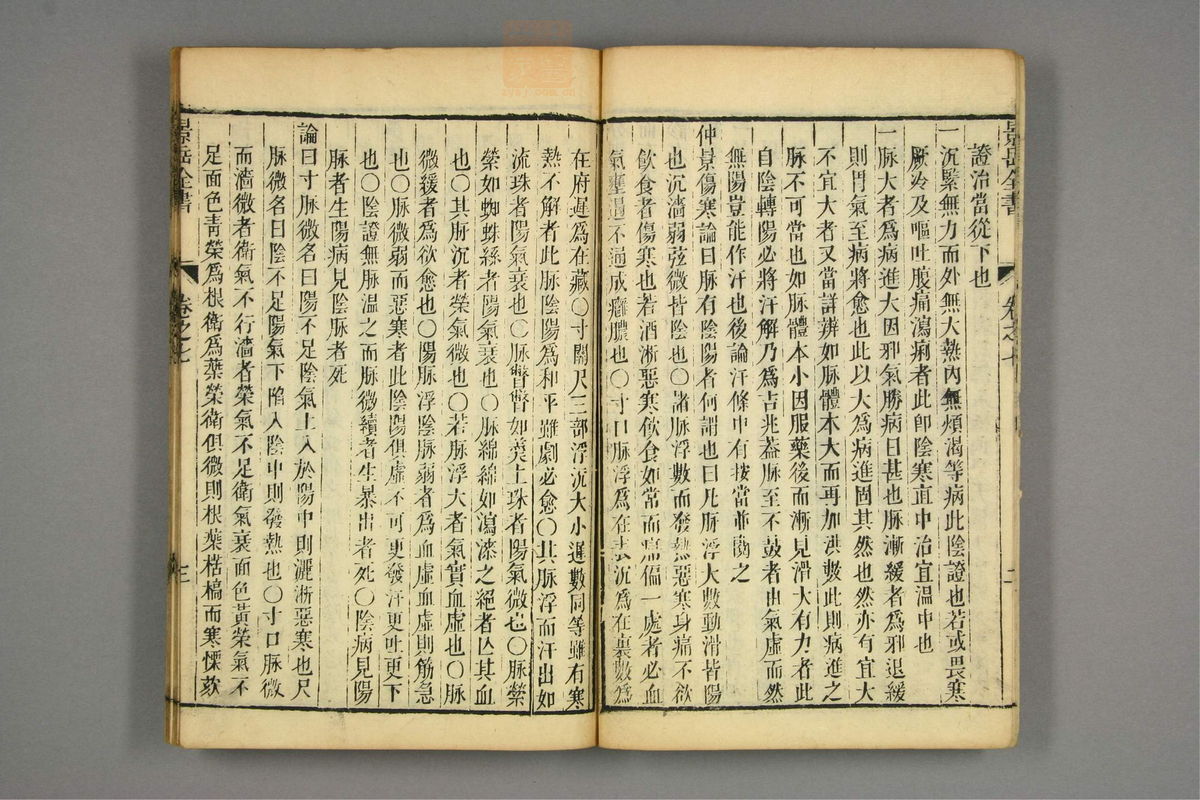 景岳全書
卷之七
二
證治當從下也
一沉緊無力而外無大熱內無煩渴等病此陰證也若或畏寒
厥冷及嘔吐腹痛瀉痢者此卽陰寒直中治宜溫中也
一脉大者爲病進大因邪氣勝病日甚也脉漸緩者爲邪退緩
則胃氣至病將愈也此以大爲病進固其然也然亦有宜大
不宜大者又當詳辨如脉體本大而再加洪數此則病進之
脉不可當也如脉體本小因服藥後而漸見滑大有力者此
自陰轉陽必將汗解乃爲吉兆葢脉至不鼓者由氣虛而然
無陽豈能作汗也後論汗條中有按當並閱之
仲景傷寒論曰脉有陰陽者何謂也曰凡脉浮大數動滑皆陽
也沉濇弱弦微皆陰也〇諸脉浮數而發熱惡寒身痛不欲
飲食者傷寒也若洒淅惡寒飲食如常而痛偏一處者必血
氣壅遏不通成癰膿也〇寸口脉浮爲在表沉爲在裏數爲
在府遲爲在藏〇寸關尺三部浮沉大小遲數同等雖有寒
熱不解者此脉陰陽爲和平雖劇必愈〇其脉浮而汗出如
流珠者陽氣衰也〇脉瞥瞥如羹上珠者陽氣微也〇脉縈
縈如蜘蛛絲者陽氣衰也〇脉綿綿如瀉漆之絕者亾其血
也〇其脉沉者榮氣微也〇若脉浮大者氣實血虛也〇脉
微緩者爲欲愈也〇陽脉浮陰脉弱者爲血虛血虛則筋急
也〇脉微弱而惡寒者此陰陽俱虛不可更發汗更吐更下
也〇陰證無脉溫之而脉微續者生暴出者死〇陰病見陽
脉者生陽病見陰脉者死
論曰寸脉微名曰陽不足陰氣上入於陽中則灑淅惡寒也尺
脉微名曰陰不足陽氣下陷入陰中則發熱也〇寸口脉微
而濇微者衛氣不行濇者榮氣不足衛氣衰面色黃榮氣不
足面色靑榮爲根衛爲葉榮衛俱微則根葉枯槁而寒慄欬
景岳全書
卷之七
三